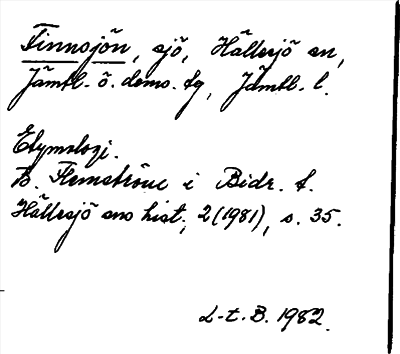 Finnsjön, sjö, Hällesjö sn,
Jämtl. ö. doms. tg, Jämtl. l.
Etymologi.
B. Flemström i Bidr. t.
Hällesjö sns hist., 2 (1981), s. 35.
L-t. B. 1982.